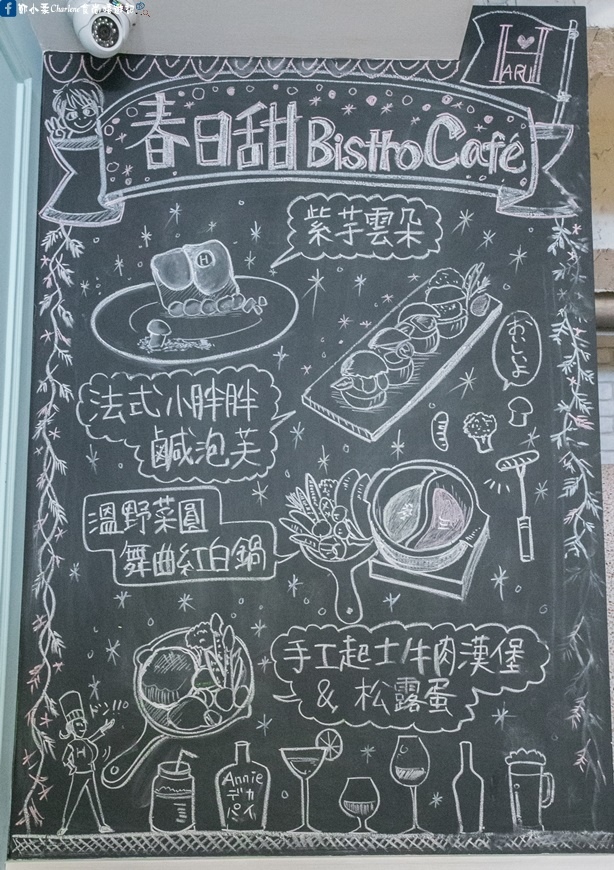 鄧小柔Charlene
H ARU
春日甜 Bistro Café
紫芋雲朵
H
おいしいよ
法式小胖胖
鹹泡芙
溫野菜圓
舞曲紅白鍋
手工起士牛肉漢堡
& 松露蛋
H
Annie
デカ
パイ